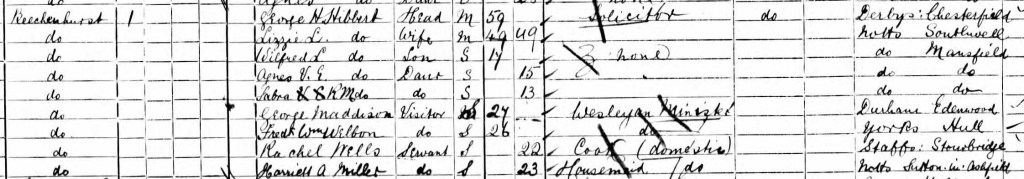 Beechenhurst 1 George H Hibbert Head M 59 Solicitor do Derbys: Chesterfield
do Lizzie L. do Wife M 49 49 Notts Southwell
do Wilfred L do Son S 17 none do Mansfield
do Agnes V. E. do Daur S 15 do do
do Sabra K M do do S 13 do do
do George Maddison Visitor S 27 Wesleyan Minister Durham Edenwood
do. Fredk Wm Welbon do S 26 do Yorks Hull
do Rachel Wells Servant S 22 Cook (domestic) Staffs: Stourbridge
do Harriett A Miller do S 23 Housemaid do Notts Sutton-in-Ashfield